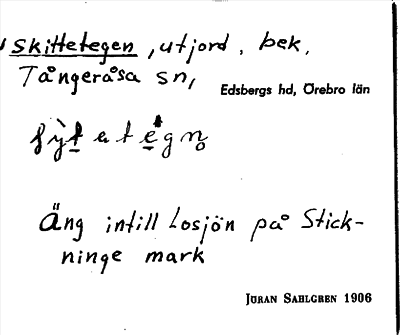 skittetegen, utjord, bek.
Tångeråsa sn,
Edsbergs hd, Örebro län
Äng intill Losjön på Stick-
ninge mark
JÖRAN SAHLGREN 1906